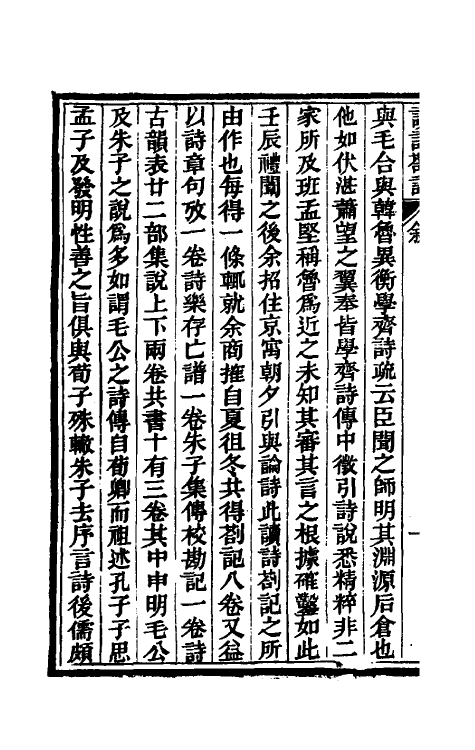 與毛合與韓魯異衡學齊詩疏云臣聞之師明其淵源后倉也
他如伏湛蕭望之翼奉皆學齊詩傳中徵引詩說悉精粹非二
家所及班孟堅稱魯爲近之未知其審其言之根據確鑿如此
壬辰禮闈之後余招住京寓朝夕引與論詩此讀詩劄記之所
由作也每得一條輒就余商搉自夏徂冬共得劄記八卷又益
以詩章句攷一卷詩樂存亡譜一卷朱子集傳校勘記一卷詩
古韻表廿二部集說上下兩卷共書十有三卷其中申明毛公
及朱子之說爲多如謂毛公之詩傳自荀卿而祖述孔子子思
孟子及發明性善之旨俱與荀子殊轍朱子去序言詩後儒頗